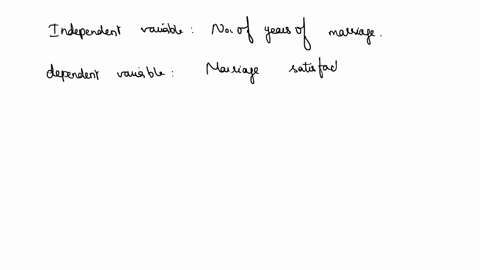 Independent variable : No. of years of marriage.
dependent variable : Marriage satisfac